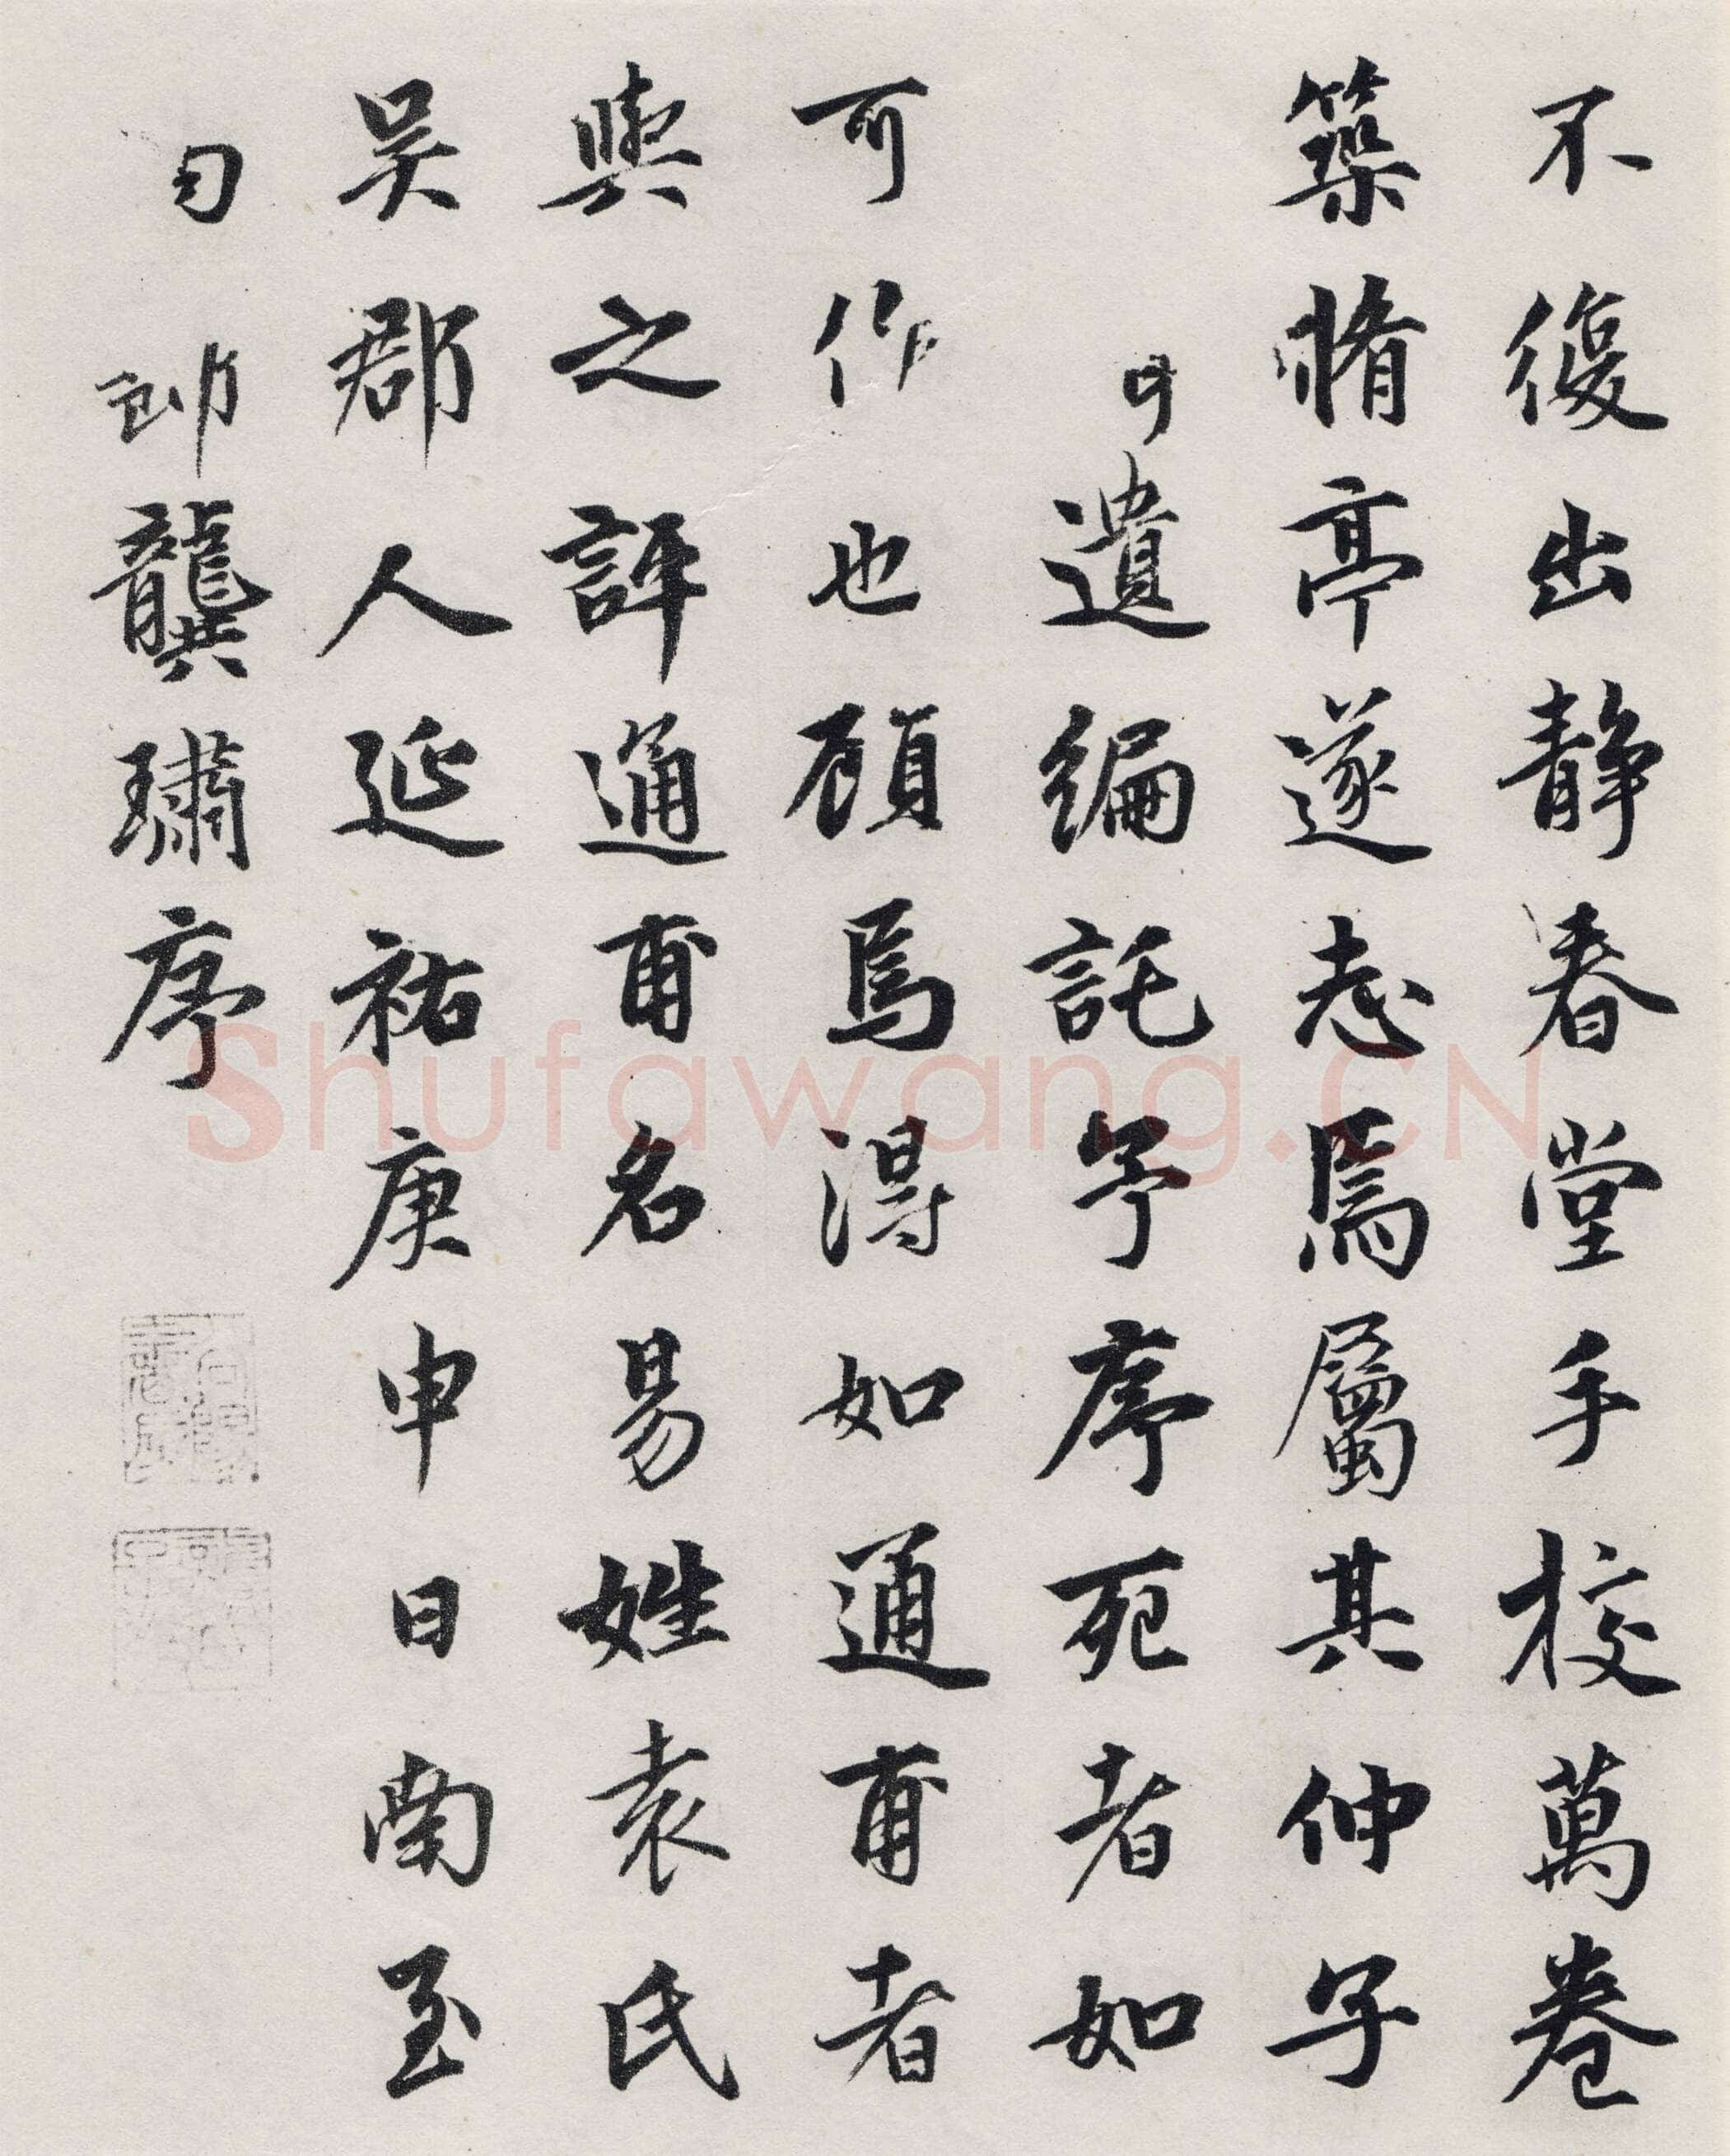 不復出靜春堂手校萬卷
築脩亭遂志焉屬其仲子
遺編託予序死者如
可作也顧焉得如通甫者
與之評通甫名易姓袁氏
吳郡人延祐庚申日南至
龔璛序
Shufawang.CN